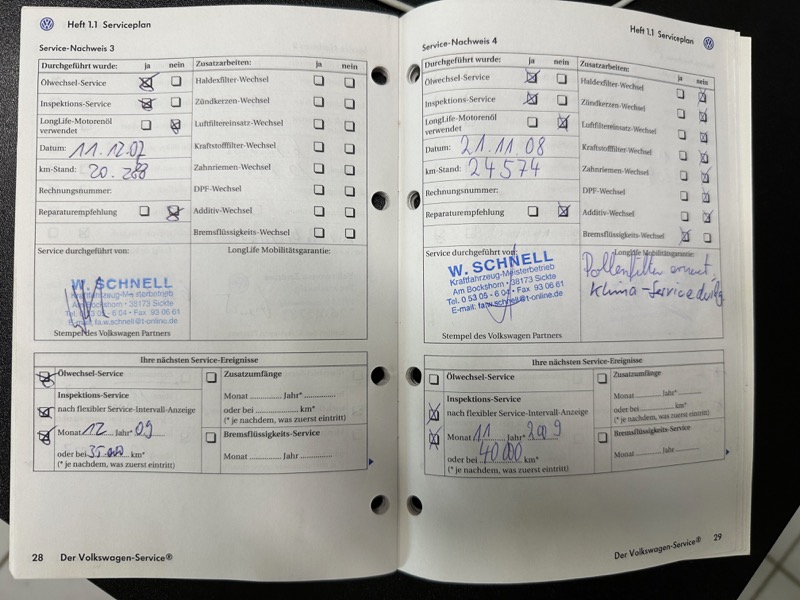 Heft 1.1 Serviceplan
Service-Nachweis 3
Durchgeführt wurde: ja nein Zusatzarbeiten: ja nein
Ölwechsel-Service Haldexfilter-Wechsel
Inspektions-Service Zündkerzen-Wechsel
LongLife-Motorenöl verwendet Luftfiltereinsatz-Wechsel
Datum: 11.12.07 Kraftstofffilter-Wechsel
km-Stand: Zahnriemen-Wechsel
Rechnungsnummer: DPF-Wechsel
Reparaturempfehlung Additiv-Wechsel
Bremsflüssigkeits-Wechsel
Service durchgeführt von: LongLife Mobilitätsgarantie:
W. SCHNELL
Kraftfahrzeug-Meisterbetrieb
Am Bockshorn • 38173 Sickte
Tel. 0 53 05 - 6 04 • Fax 93 06 61
E-mail: fa.w.schnell@t-online.de
Stempel des Volkswagen Partners
Ihre nächsten Service-Ereignisse
Ölwechsel-Service Zusatzumfänge
Inspektions-Service Monat ............ Jahr* ............
nach flexibler Service-Intervall-Anzeige oder bei ............ km*
(* je nachdem, was zuerst eintritt)
Monat 12 Jahr* 09 Bremsflüssigkeits-Service
oder bei km* Monat ............ Jahr ............
(* je nachdem, was zuerst eintritt)
28 Der Volkswagen-Service®
Heft 1.1 Serviceplan
Service-Nachweis 4
Durchgeführt wurde: ja nein Zusatzarbeiten: ja nein
Ölwechsel-Service Haldexfilter-Wechsel
Inspektions-Service Zündkerzen-Wechsel
LongLife-Motorenöl verwendet Luftfiltereinsatz-Wechsel
Datum: 21.11.08 Kraftstofffilter-Wechsel
km-Stand: 24574 Zahnriemen-Wechsel
Rechnungsnummer: DPF-Wechsel
Reparaturempfehlung Additiv-Wechsel
Bremsflüssigkeits-Wechsel
Service durchgeführt von: LongLife Mobilitätsgarantie:
W. SCHNELL
Kraftfahrzeug-Meisterbetrieb
Am Bockshorn • 38173 Sickte
Tel. 0 53 05 - 6 04 • Fax 93 06 61
E-mail: fa.w.schnell@t-online.de
Pollenfilter erneut.
Klima-Service
Stempel des Volkswagen Partners
Ihre nächsten Service-Ereignisse
Ölwechsel-Service Zusatzumfänge
Inspektions-Service Monat ............ Jahr* ............
nach flexibler Service-Intervall-Anzeige oder bei ............ km*
(* je nachdem, was zuerst eintritt)
Monat 11 Jahr* 2009 Bremsflüssigkeits-Service
oder bei 40000 km* Monat ............ Jahr ............
(* je nachdem, was zuerst eintritt)
Der Volkswagen-Service® 29